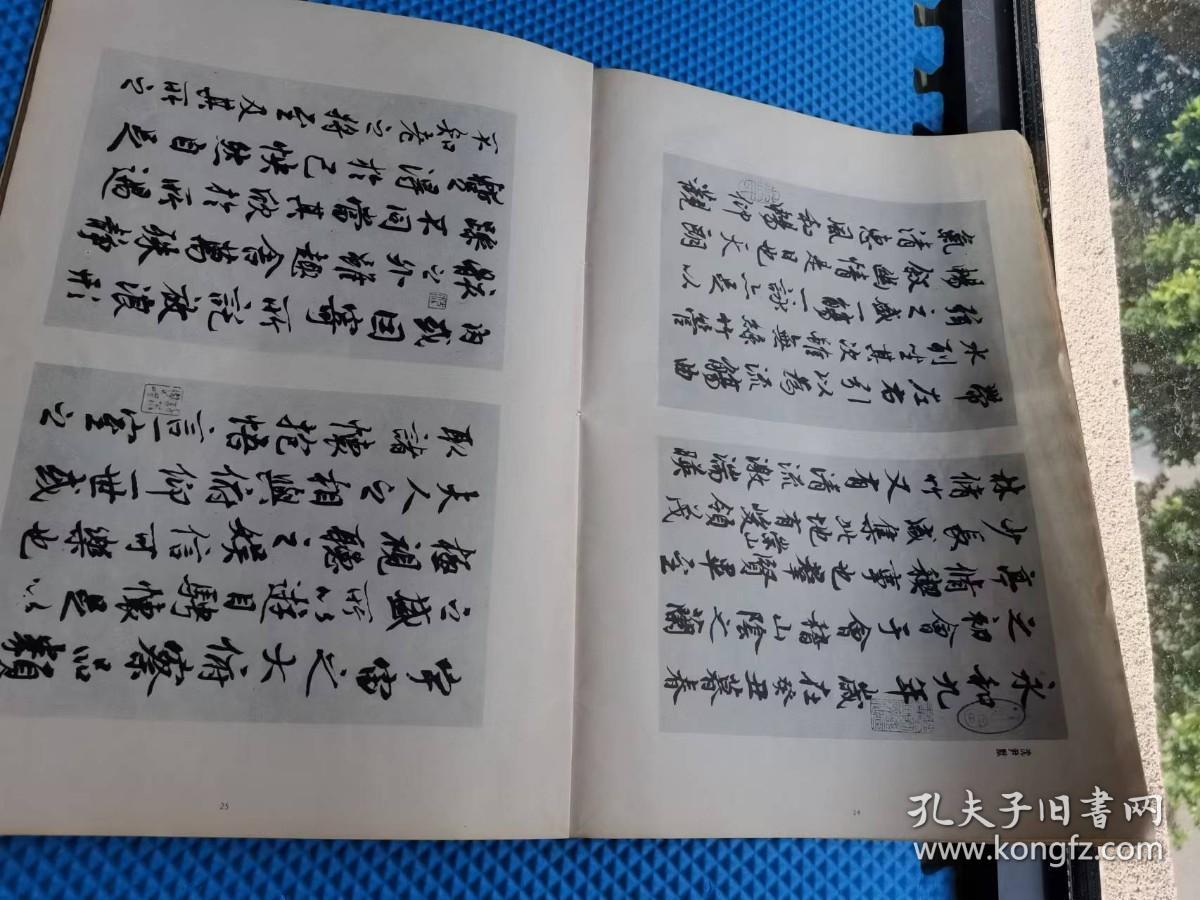 沈尹默
永和九年歲在癸丑暮春
之初會于會稽山陰之蘭
亭脩禊事也羣賢畢至
少長咸集此地有崇山峻領茂
林脩竹又有清流激湍暎
帶左右引以為流觴曲
水列坐其次雖無絲竹管
弦之盛一觴一詠亦足以
暢敘幽情是日也天朗
氣清惠風和暢仰觀
24
宇宙之大俯察品類
之盛所以遊目騁懷足以
極視聽之娛信可樂也
夫人之相與俯仰一世或
取諸懷抱悟言一室之
內或因寄所託放浪形
骸之外雖趣舍萬殊靜
躁不同當其欣於所遇
蹔得於己快然自足
不知老之將至及其所之
25
孔夫子旧书网
www.kongfz.com